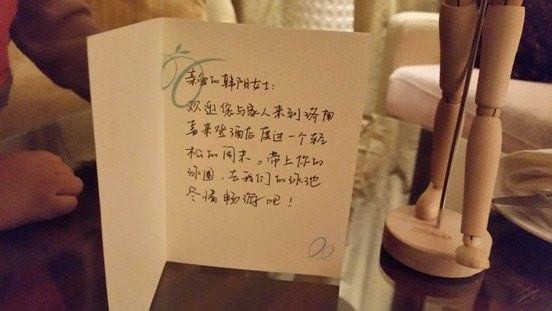 亲爱的韩阳女士:
欢迎您与家人来到洛阳
喜来登酒店度过一个轻
松的周末。带上你的
泳圈,在我们的泳池
尽情畅游吧!